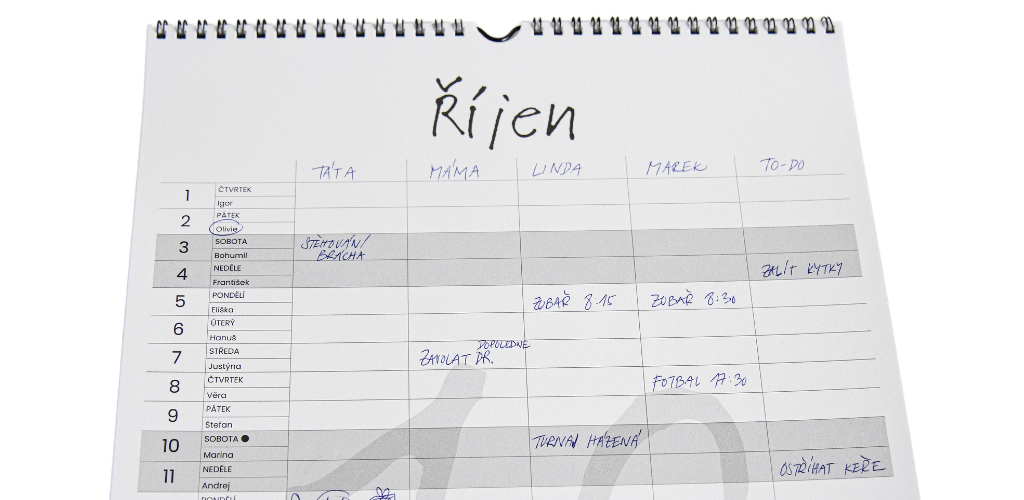 Říjen
TÁTA MÁMA LINDA MAREK TO-DO
1 ČTVRTEK
Igor
2 PÁTEK
Olivie
3 SOBOTA STĚHOVÁNÍ
Bohumil BRÁCHA
4 NEDĚLE ZALÍT KYTKY
František
5 PONDĚLÍ ZUBAŘ 8:15 ZUBAŘ 8:30
Eliška
6 ÚTERÝ
Hanuš
DOPOLEDNE
7 STŘEDA ZAVOLAT DR.
Justýna
8 ČTVRTEK FOTBAL 17:30
Věra
9 PÁTEK
Štefan
10 SOBOTA TURNAJ HÁZENÁ
Marina
11 NEDĚLE OSTŘÍHAT KEŘE
Andrej
PONDĚLÍ